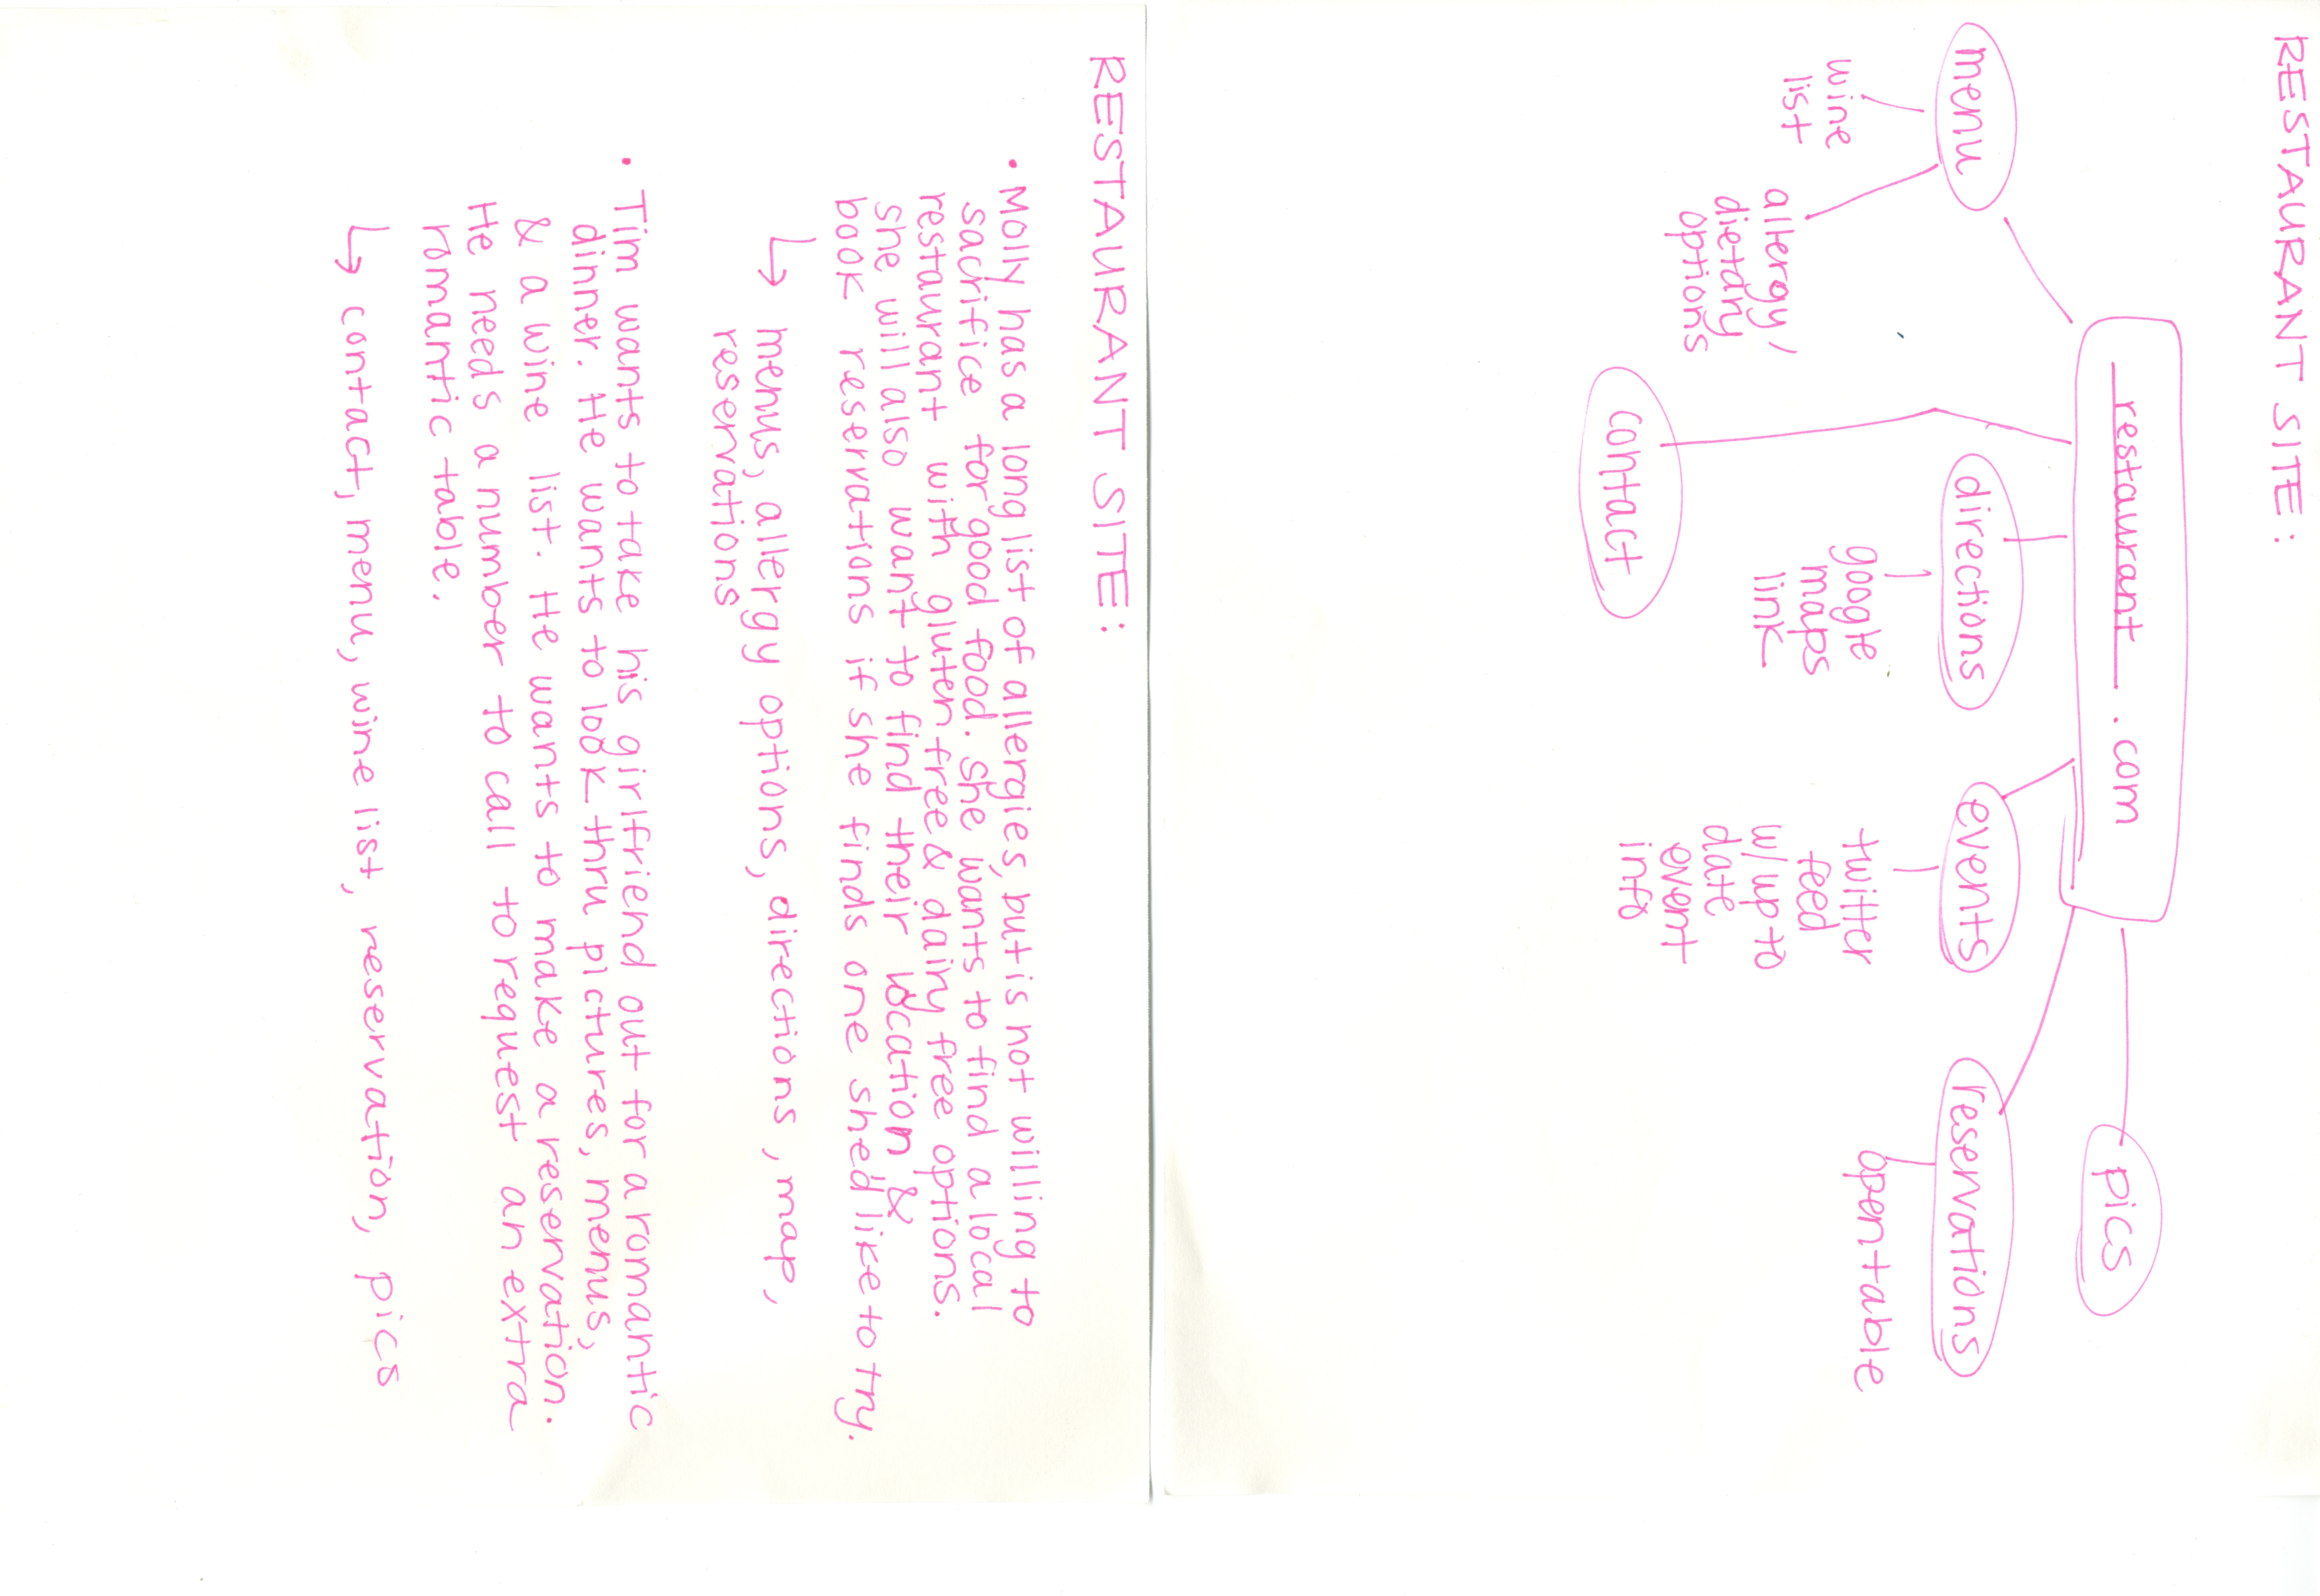 RESTAURANT SITE:
restaurant .com
menu
wine
list
allergy/
dietary
options
contact
directions
google
maps
link
events
twitter
feed
w/up to
date
event
info
reservations
opentable
pics
RESTAURANT SITE:
• Molly has a long list of allergies, but is not willing to
sacrifice for good food. She wants to find a local
restaurant with gluten free & dairy free options.
She will also want to find their location &
book reservations if she finds one she'd like to try.
↳ menus, allergy options, directions, map,
reservations
• Tim wants to take his girlfriend out for a romantic
dinner. He wants to look thru pictures, menus,
& a wine list. He wants to make a reservation.
He needs a number to call to request an extra
romantic table.
↳ contact, menu, wine list, reservation, pics